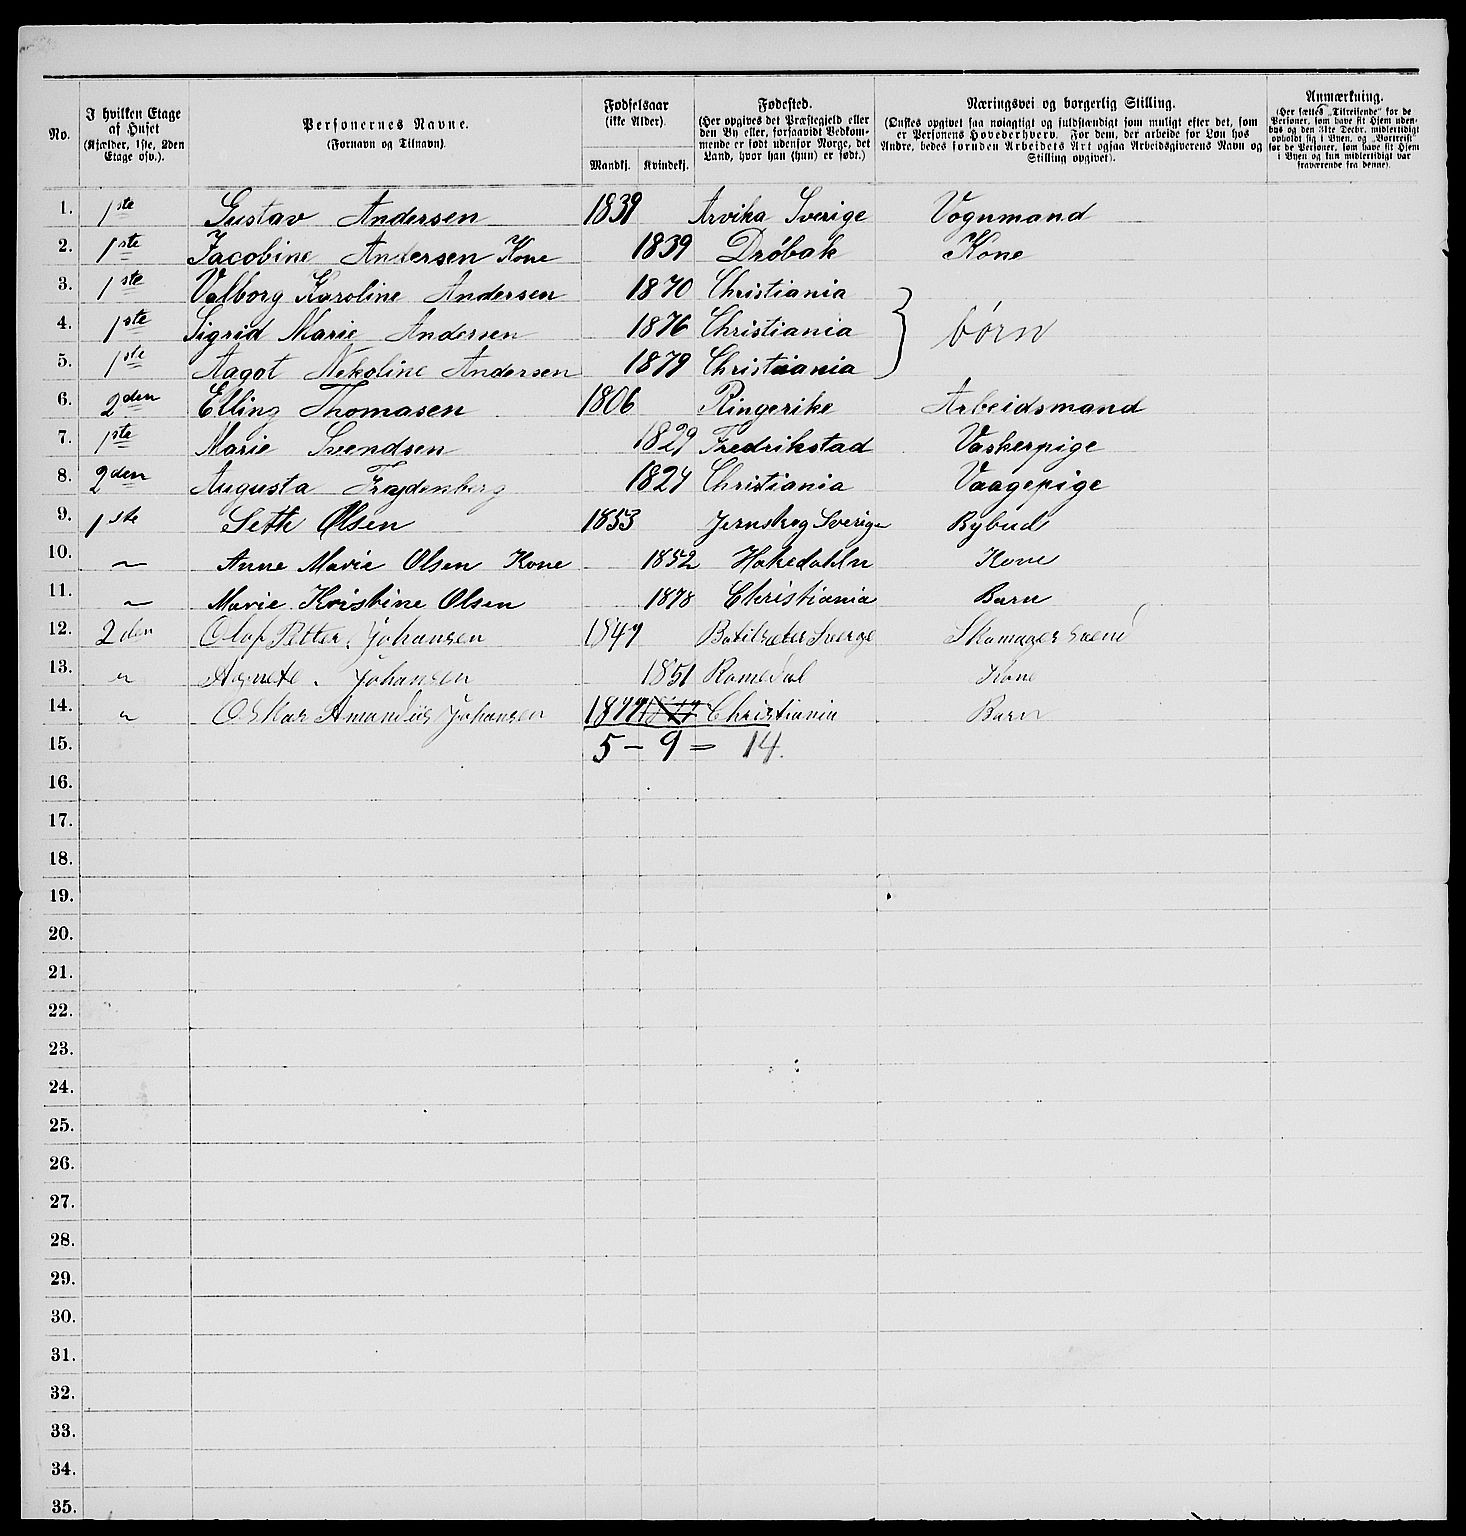 No. I hvilken Etage af Huset (Kjælder, 1ste, 2den Etage osv.). Personernes Navne. (Fornavn og Tilnavn). Fødselsaar (ikke Alder). Mandkj. Kvindekj. Fødested. (Her opgives det Præstegjeld eller den By eller, forsaavidt Vedkommende er født udenfor Norge, det Land, hvor han (hun) er født.) Næringsvei og borgerlig Stilling. (Ønskes opgivet saa nøiagtigt og fuldstændigt som muligt efter det, som er Personens Hovederhverv. For dem, der arbeide for Løn hos Andre, bedes foruden Arbeidets Art ogsaa Arbeidsgiverens Navn og Stilling opgivet). Anmærkning. (Her sættes „Tilreisende" for de Personer, som have sit Hjem udenbys og den 31te Decbr. midlertidigt opholdt sig i Byen, og „Bortreist" for de Personer, som have sit Hjem i Byen og kun midlertidigt var fraværende fra denne).
1. 1ste Gustav Andersen 1839 Arvika Sverige Vognmand
2. 1ste Jacobine Andersen Kone 1839 Drøbak Kone
3. 1ste Valborg Karoline Andersen 1870 Christiania
4. 1ste Sigrid Marie Andersen 1876 Christiania } børn
5. 1ste Aagot Nekoline Andersen 1879 Christiania
6. 2den Elling Thomasen 1806 Ringerike Arbeidsmand
7. 1ste Marie Svendsen 1829 Fredrikstad Vaskerpige
8. 2den Augusta Frydenberg 1824 Christiania Vaagepige
9. 1ste Seth Olsen 1853 Jernskog Sverige Bybud
10. " Anne Marie Olsen Kone 1852 Hakedahln Kone
11. " Marie Kristine Olsen 1878 Christiania Barn
12. 2den Olof Petter Johansen 1847 Sverge Skomager svend
13. " Agnete Johansen 1851 Romedal Kone
14. " Oskar Amandus Johansen 1877 1877 Christiania Barn
15. 5 - 9 = 14.
16.
17.
18.
19.
20.
21.
22.
23.
24.
25.
26.
27.
28.
29.
30.
31.
32.
33.
34.
35.